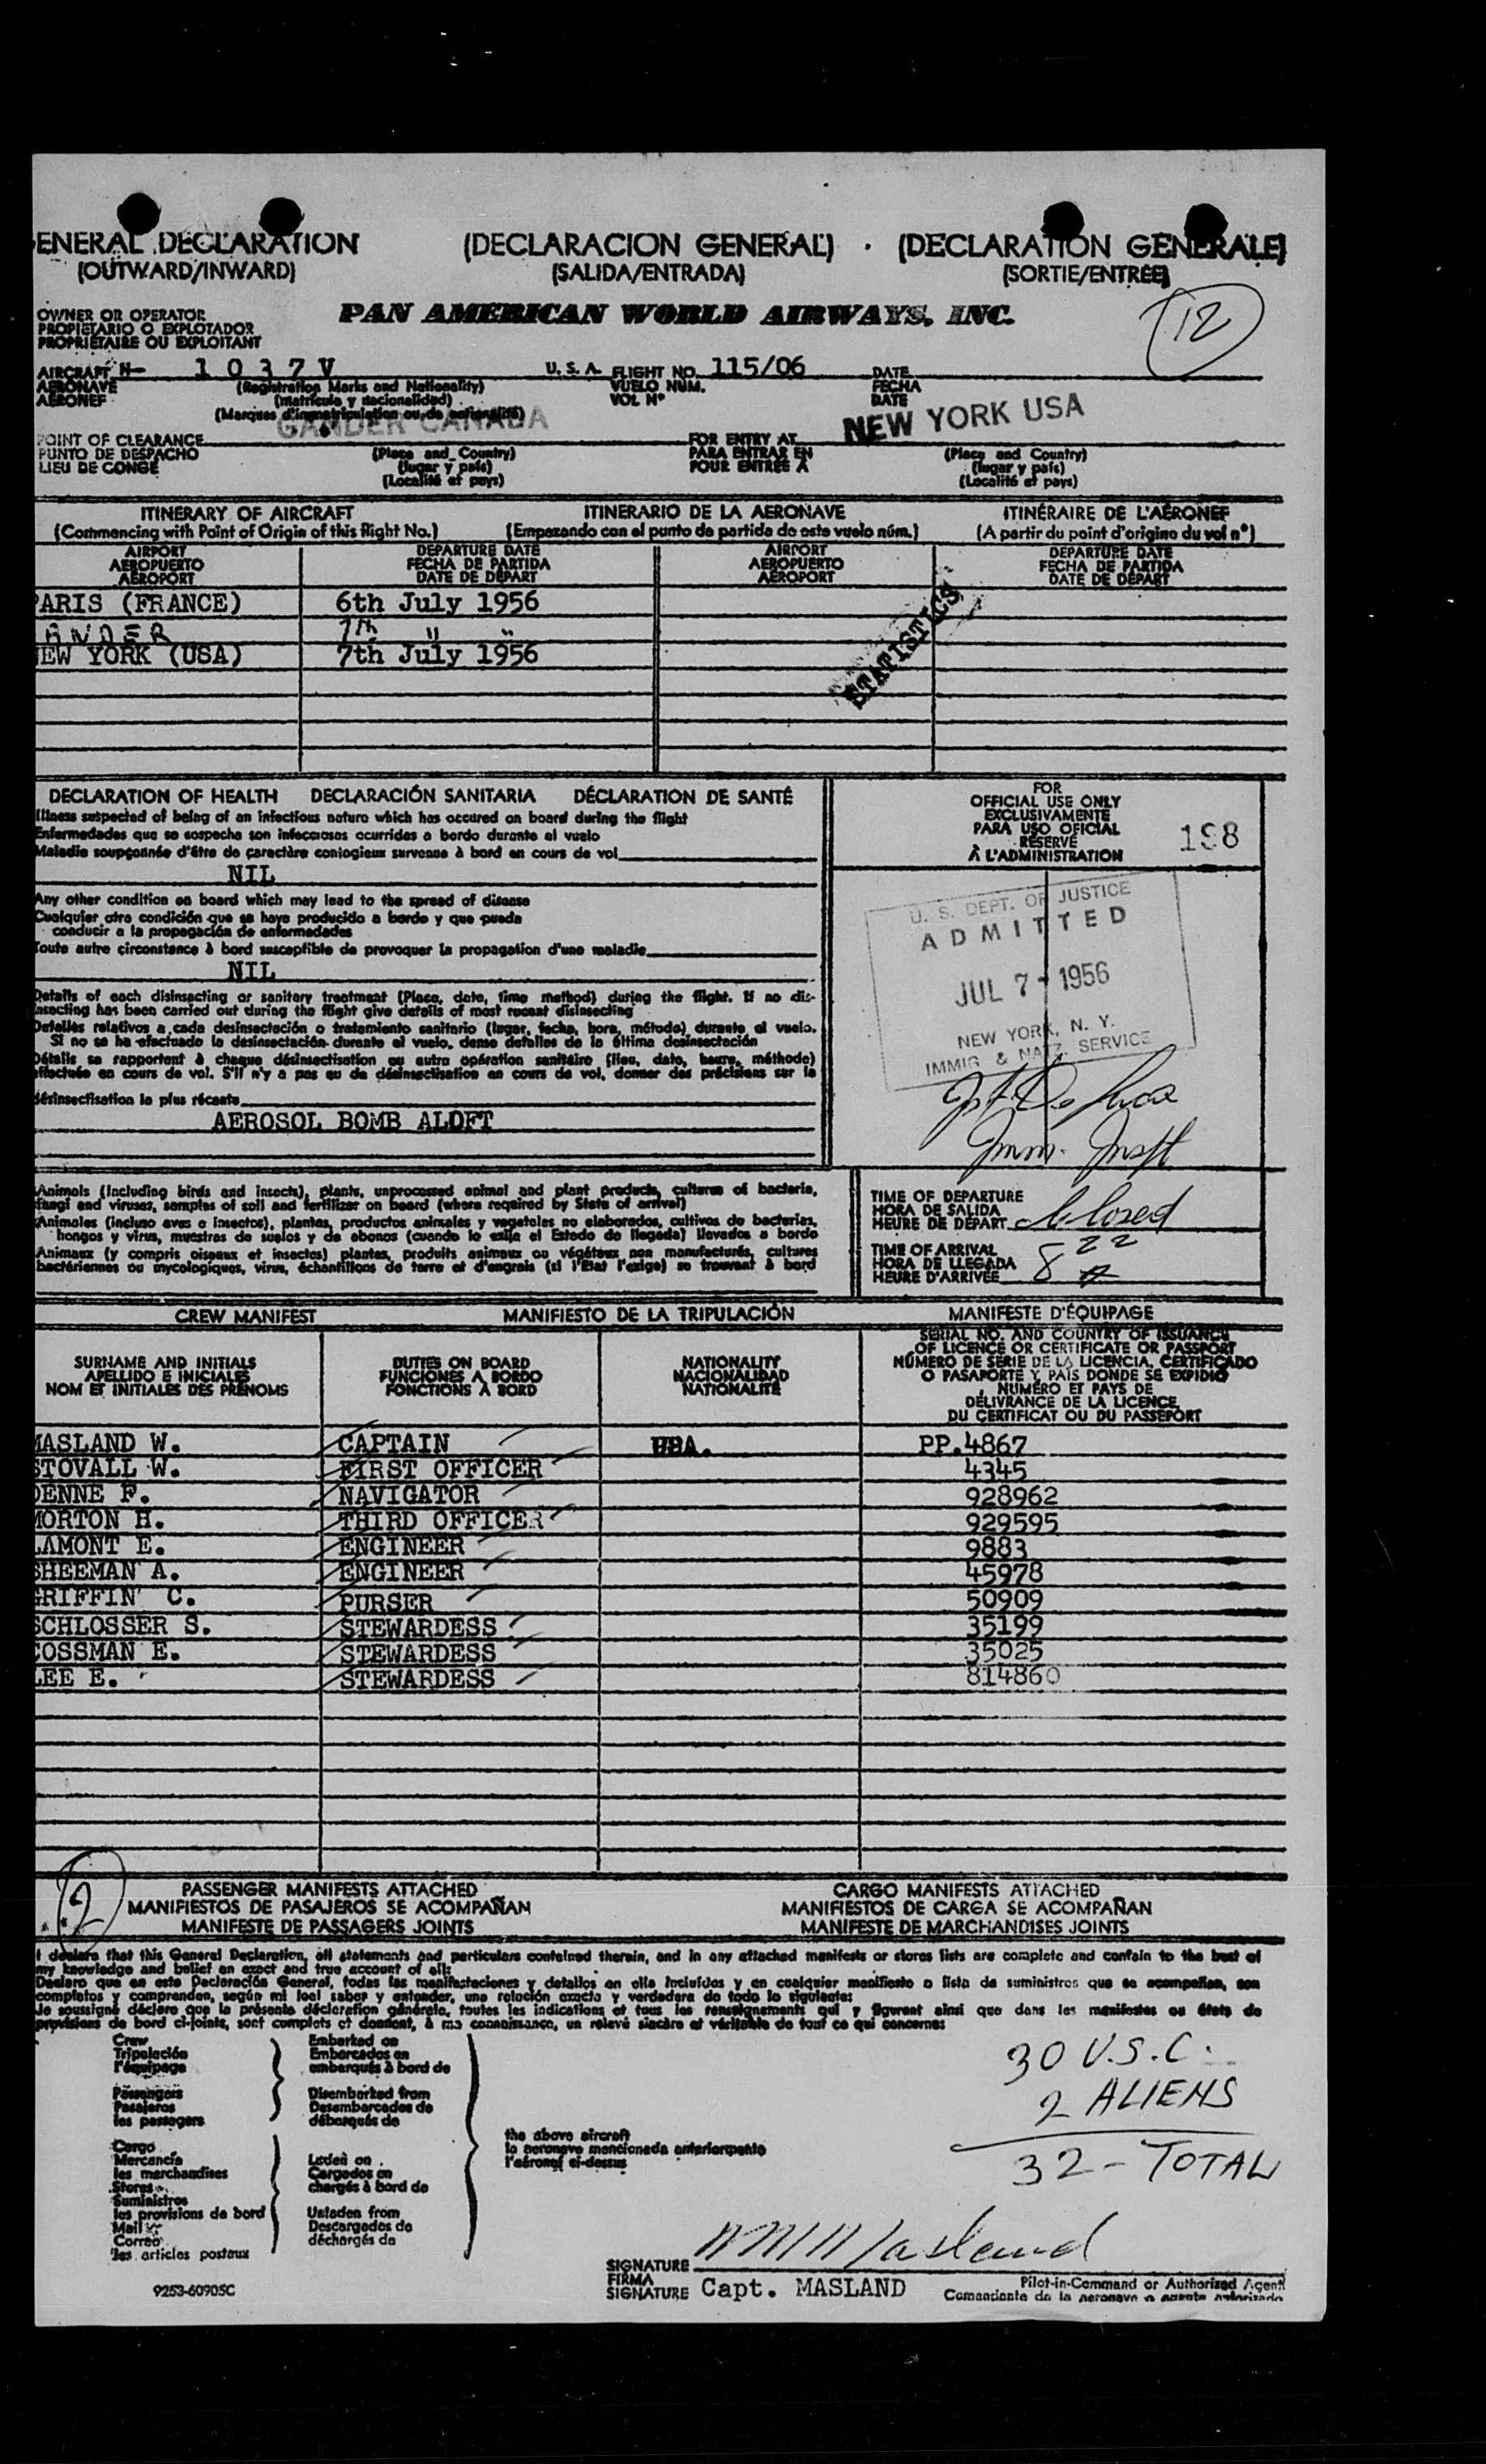 ENERAL DECLARATION (DECLARACION GENERAL) (DECLARATION GENERALE)
(OUTWARD/INWARD) (SALIDA/ENTRADA) (SORTIE/ENTRÉE)
12
OWNER OR OPERATOR
PROPIETARIO O EXPLOTADOR
PROPRIÉTAIRE OU EXPLOITANT
PAN AMERICAN WORLD AIRWAYS, INC.
AIRCRAFT N- 1 0 3 7 V U. S. A. FLIGHT NO. 115/06 DATE
AERONAVE (Registration Marks and Nationality) VUELO NUM. FECHA
AÉRONEF (matricula y nacionalidad) VOL Nº DATE
(Marques d'immatriculation ou de nationalité)
GANDER CANADA NEW YORK USA
POINT OF CLEARANCE FOR ENTRY AT
PUNTO DE DESPACHO (Place and Country) PARA ENTRAR EN (Place and Country)
LIEU DE CONGÉ (lugar y país) POUR ENTRÉE A (lugar y país)
(Localité et pays) (Localité et pays)
ITINERARY OF AIRCRAFT ITINERARIO DE LA AERONAVE ITINÉRAIRE DE L'AÉRONEF
(Commencing with Point of Origin of this flight No.) (Empezando con el punto de partida de este vuelo núm.) (A partir du point d'origine du vol nº)
AIRPORT DEPARTURE DATE AIRPORT DEPARTURE DATE
AEROPUERTO FECHA DE PARTIDA AEROPUERTO FECHA DE PARTIDA
AÉROPORT DATE DE DÉPART AÉROPORT DATE DE DÉPART
PARIS (FRANCE) 6th July 1956
ANDER 7th " "
EW YORK (USA) 7th July 1956
STATISTICS
DECLARATION OF HEALTH DECLARACIÓN SANITARIA DÉCLARATION DE SANTÉ
Illness suspected of being of an infectious nature which has occured on board during the flight
Enfermedades que se sospecha son infecciosas ocurridas a bordo durante el vuelo
Maladie soupçonnée d'être de caractère contagieux survenue à bord en cours de vol
NIL
Any other condition on board which may lead to the spread of disease
Cualquier otra condición que se haya producido a bordo y que pueda
conducir a la propagación de enfermedades
Toute autre circonstance à bord susceptible de provoquer la propagation d'une maladie
NIL
Details of each disinsecting or sanitary treatment (Place, date, time method) during the flight. If no dis-
insecting has been carried out during the flight give details of most recent disinsecting
Detalles relativos a cada desinsectación o tratamiento sanitario (lugar, fecha, hora, método) durante el vuelo.
Si no se ha efectuado la desinsectación durante el vuelo, dense detalles de la última desinsectación
Détails se rapportant à chaque désinsectisation ou autre opération sanitaire (lieu, date, heure, méthode)
effectuée en cours de vol. S'il n'y a pas eu de désinsectisation en cours de vol, donner des précisions sur la
désinsectisation la plus récente
AEROSOL BOMB ALOFT
FOR
OFFICIAL USE ONLY
EXCLUSIVAMENTE
PARA USO OFICIAL
RÉSERVÉ
À L'ADMINISTRATION
198
U. S. DEPT. OF JUSTICE
ADMITTED
JUL 7 - 1956
NEW YORK, N. Y.
IMMIG. & NATZ. SERVICE
Imm. Inspt
Animals (including birds and insects), plants, unprocessed animal and plant products, cultures of bacteria,
fungi and viruses, samples of soil and fertilizer on board (where required by State of arrival)
Animales (incluso aves e insectos), plantas, productos animales y vegetales no elaborados, cultivos de bacterias,
hongos y virus, muestras de suelos y de abonos (cuando lo exija el Estado de llegada) llevados a bordo
Animaux (y compris oiseaux et insectes) plantes, produits animaux ou végétaux non manufacturés, cultures
bactériennes ou mycologiques, virus, échantillons de terre et d'engrais (si l'Etat l'exige) se trouvant à bord
TIME OF DEPARTURE
HORA DE SALIDA
HEURE DE DÉPART Closed
TIME OF ARRIVAL
HORA DE LLEGADA
HEURE D'ARRIVÉE 8 22 A
CREW MANIFEST MANIFIESTO DE LA TRIPULACIÓN MANIFESTE D'ÉQUIPAGE
SURNAME AND INITIALS
APELLIDO E INICIALES
NOM ET INITIALES DES PRÉNOMS
DUTIES ON BOARD
FUNCIONES A BORDO
FONCTIONS À BORD
NATIONALITY
NACIONALIDAD
NATIONALITÉ
SERIAL NO. AND COUNTRY OF ISSUANCE
OF LICENCE OR CERTIFICATE OR PASSPORT
NÚMERO DE SERIE DE LA LICENCIA, CERTIFICADO
O PASAPORTE Y PAÍS DONDE SE EXPIDIÓ
NUMÉRO ET PAYS DE
DÉLIVRANCE DE LA LICENCE
DU CERTIFICAT OU DU PASSEPORT
MASLAND W. CAPTAIN PP.4867
STOVALL W. FIRST OFFICER 4345
DENNE F. NAVIGATOR 928962
MORTON H. THIRD OFFICER 929595
LAMONT E. ENGINEER 9883
SHEEMAN A. ENGINEER 45978
GRIFFIN C. PURSER 50909
SCHLOSSER S. STEWARDESS 35199
COSSMAN E. STEWARDESS 35025
LEE E. STEWARDESS 814860
2
PASSENGER MANIFESTS ATTACHED CARGO MANIFESTS ATTACHED
MANIFIESTOS DE PASAJEROS SE ACOMPAÑAN MANIFIESTOS DE CARGA SE ACOMPAÑAN
MANIFESTE DE PASSAGERS JOINTS MANIFESTE DE MARCHANDISES JOINTS
I declare that this General Declaration, all statements and particulars contained therein, and in any attached manifests or stores lists are complete and contain to the best of
my knowledge and belief an exact and true account of all:
Declaro que en esta Declaración General, todas las manifestaciones y detalles en ella incluídos y en cualquier manifiesto o lista de suministros que se acompañan, son
completos y comprenden, según mi leal saber y entender, una relación exacta y verdadera de todo lo siguiente:
Je soussigné déclare que la présente déclaration générale, toutes les indications et tous les renseignements qui y figurent ainsi que dans les manifestes ou états de
provisions de bord ci-joints, sont complets et donnent, à ma connaissance, un relevé sincère et véritable de tout ce qui concerne:
Crew
Tripulación
l'équipage
Passengers
Pasajeros
les passagers
Cargo
Mercancía
les marchandises
Stores
Suministros
les provisions de bord
Mail
Correo
les articles postaux
Embarked on
Embarcados en
embarqués à bord de
Disembarked from
Desembarcados de
débarqués de
Laden on
Cargados en
chargés à bord de
Unladen from
Descargados de
déchargés de
the above aircraft
la aeronave mencionada anteriormente
l'aéronef ci-dessus
30 U.S.C.
2 ALIENS
32 - TOTAL
SIGNATURE Masland
FIRMA
SIGNATURE Capt. MASLAND
Pilot-in-Command or Authorized Agent
Comandante de la aeronave o agente autorizado
9253-60905C